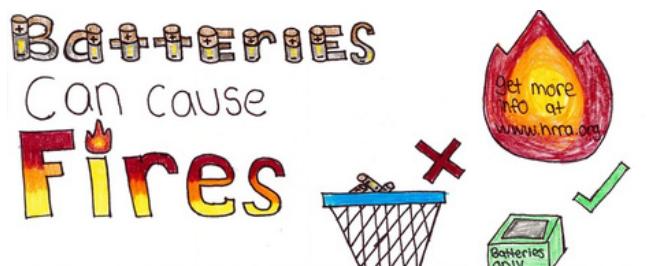 Batteries
Can cause
Fires
get more
info at
www.hrra.org
Batteries
only